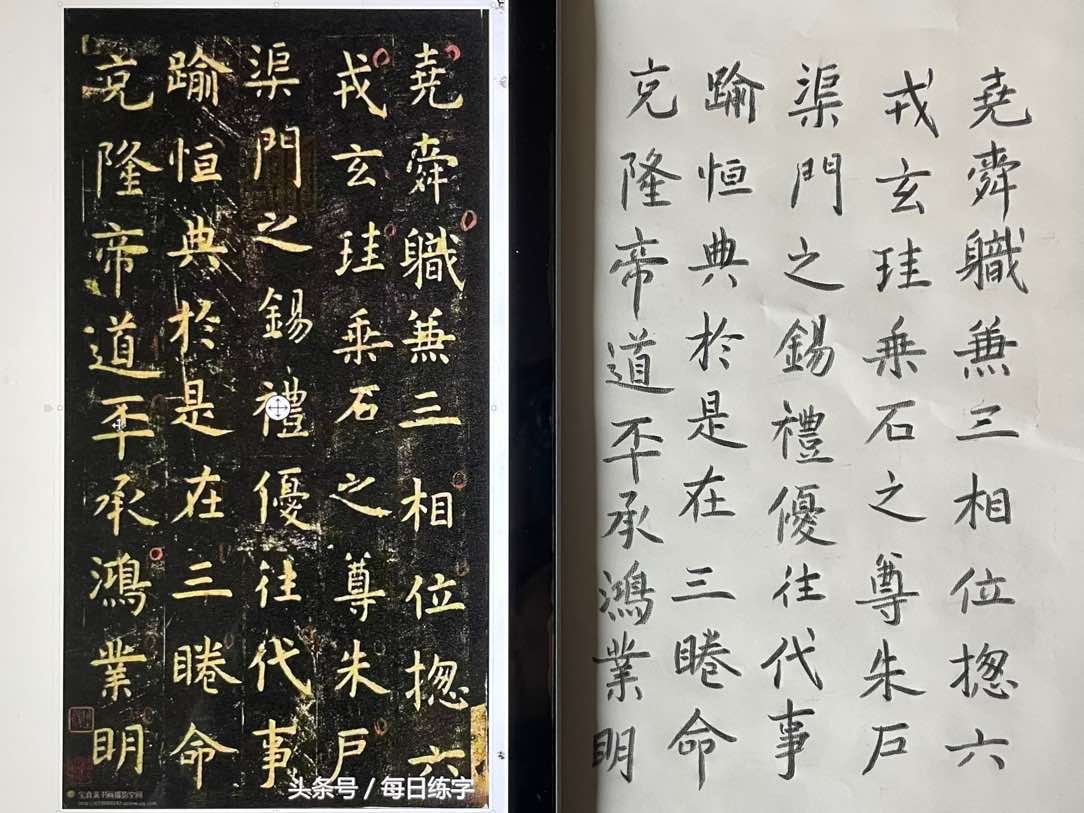 堯舜職兼三相位揔六
戎玄珪乘石之尊朱戶
渠門之錫禮優往代事
踰恒典於是在三睠命
克隆帝道丕承鴻業明
头条号 / 每日练字
堯舜職兼三相位揔六
戎玄珪乘石之尊朱戶
渠門之錫禮優往代事
踰恒典於是在三睠命
克隆帝道丕承鴻業明